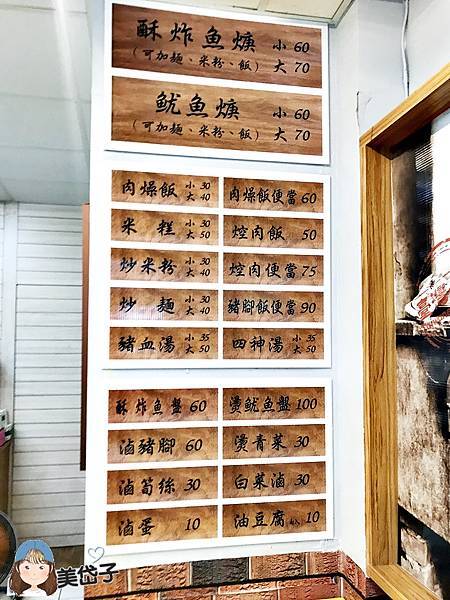 酥炸魚焿 小 60
(可加麵、米粉、飯) 大 70
魷魚焿 小 60
(可加麵、米粉、飯) 大 70
肉燥飯 小 30 大 40
肉燥飯便當 60
米糕 小 30 大 50
焢肉飯 50
炒米粉 小 30 大 40
焢肉便當 75
炒麵 小 30 大 40
豬腳飯便當 90
豬血湯 小 35 大 50
四神湯 小 35 大 50
酥炸魚盤 60
燙魷魚盤 100
滷豬腳 60
燙青菜 30
滷筍絲 30
白菜滷 30
滷蛋 10
油豆腐 10
美岱子